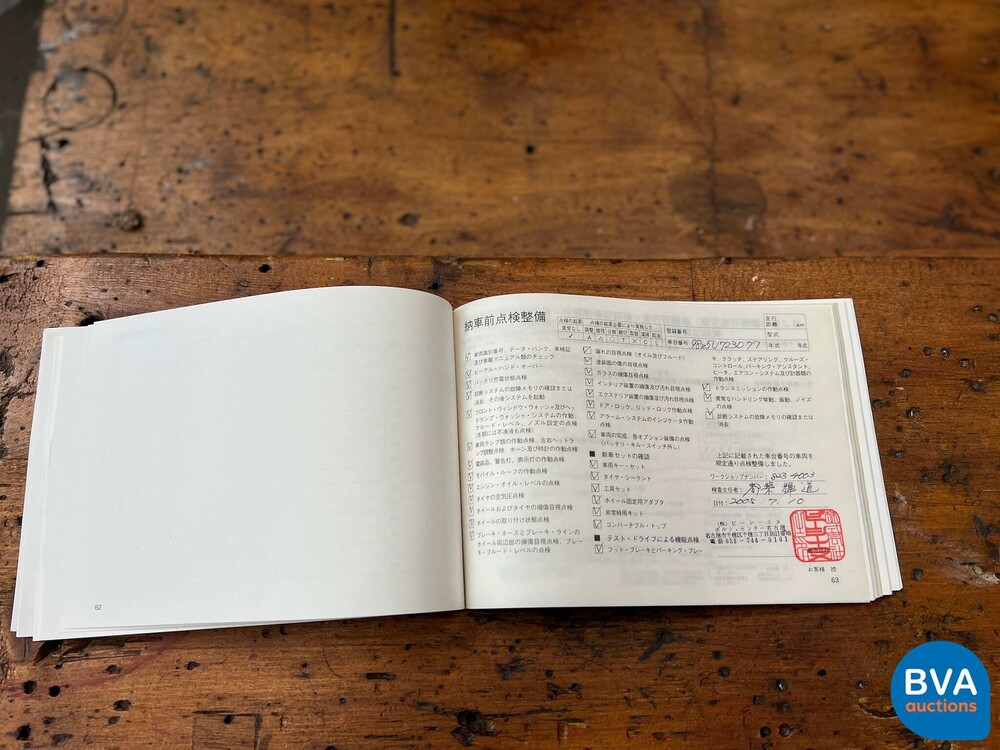 納車前点検整備
点検の結果
異常なし
点検の結果必要により実施した
調整 修理 分解 締付 取替 清掃 給油
✓ A △ ○ T X C L
登録番号
走行
距離 km
車台番号
型式
年式
車両識別番号、データ・バンク、車検証
及び車載マニュアル類のチェック
ビークル・ハンド・オーバー
バッテリ充電状態点検
診断システムの故障メモリの確認または
消去、その後システムを起動
フロント・ウィンドウ・ウォッシャ及びヘッ
ドランプ・ウォッシャ・システムの作動、
フルード・レベル、ノズル設定の点検
(冬期には不凍液も点検)
車両ランプ類の作動点検、左右ヘッドラ
ンプ調整点検、ホーン及び時計の作動点検
電装品、警告灯、表示灯の作動点検
モバイル・ルーフの作動点検
エンジン・オイル・レベルの点検
タイヤの空気圧点検
ホイールおよびタイヤの損傷目視点検
ホイールの取り付け状態点検
ブレーキ・ホースとブレーキ・ラインの
ホイール周辺部の損傷目視点検、ブレー
キ・フルード・レベルの点検
漏れの目視点検(オイル及びフルード)
塗装面の傷の目視点検
ガラスの損傷目視点検
インテリア装置の損傷及び汚れ目視点検
エクステリア装置の損傷及び汚れ目視点検
ドア・ロック、リッド・ロック作動点検
アラーム・システムのインジケータ作動
点検
車両の完成、各オプション装備の点検
(バッテリ・キル・スイッチ外し)
■ 新車セットの確認
車両キー・セット
タイヤ・シーラント
工具セット
ホイール固定用アダプタ
非常時用キット
コンバーチブル・トップ
■ テスト・ドライブによる機能点検
フット・ブレーキとパーキング・ブレー
キ、クラッチ、ステアリング、クルーズ・
コントロール、パーキング・アシスタント、
ヒータ、エアコン・システム及び計器類の
作動点検
トランスミッションの作動点検
異常なハンドリング挙動、振動、ノイズ
の点検
診断システムの故障メモリの確認または
消去
上記に記載された車台番号の車両を
規定通り点検整備しました。
ワークショップナンバー：
検査主任者：
日付：2005. 7. 10
ポルシェセンター名古屋
名古屋市千種区千種三丁目3611番地
電話 052-744-0101
お客様 控
62
63
BVA
auctions